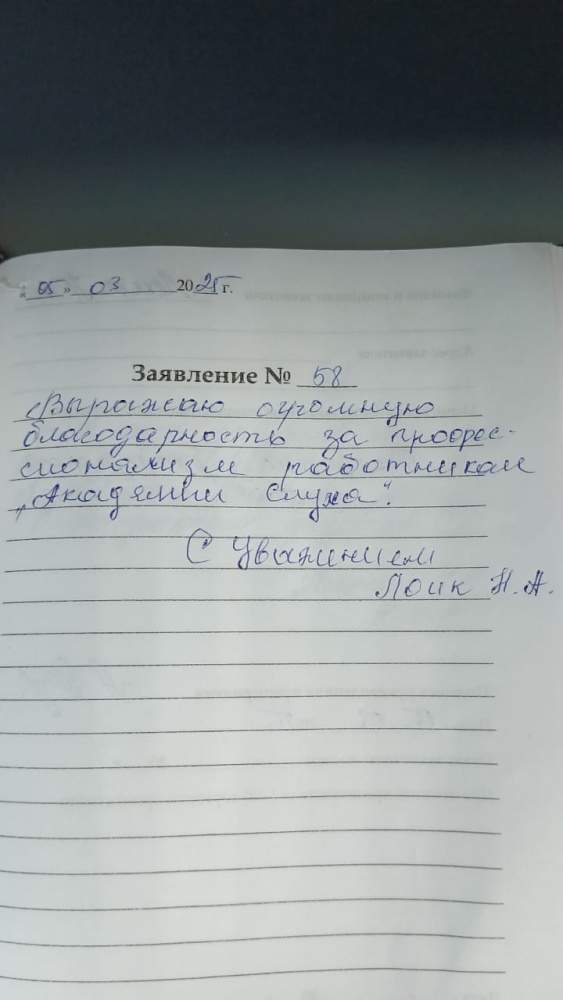 « 05 » 03 2025 г.
Заявление № 58
Выражаю огромную
благодарность за профес-
сионализм работникам
„Академии Слуха".
С Уважением
Лоик Н.А.